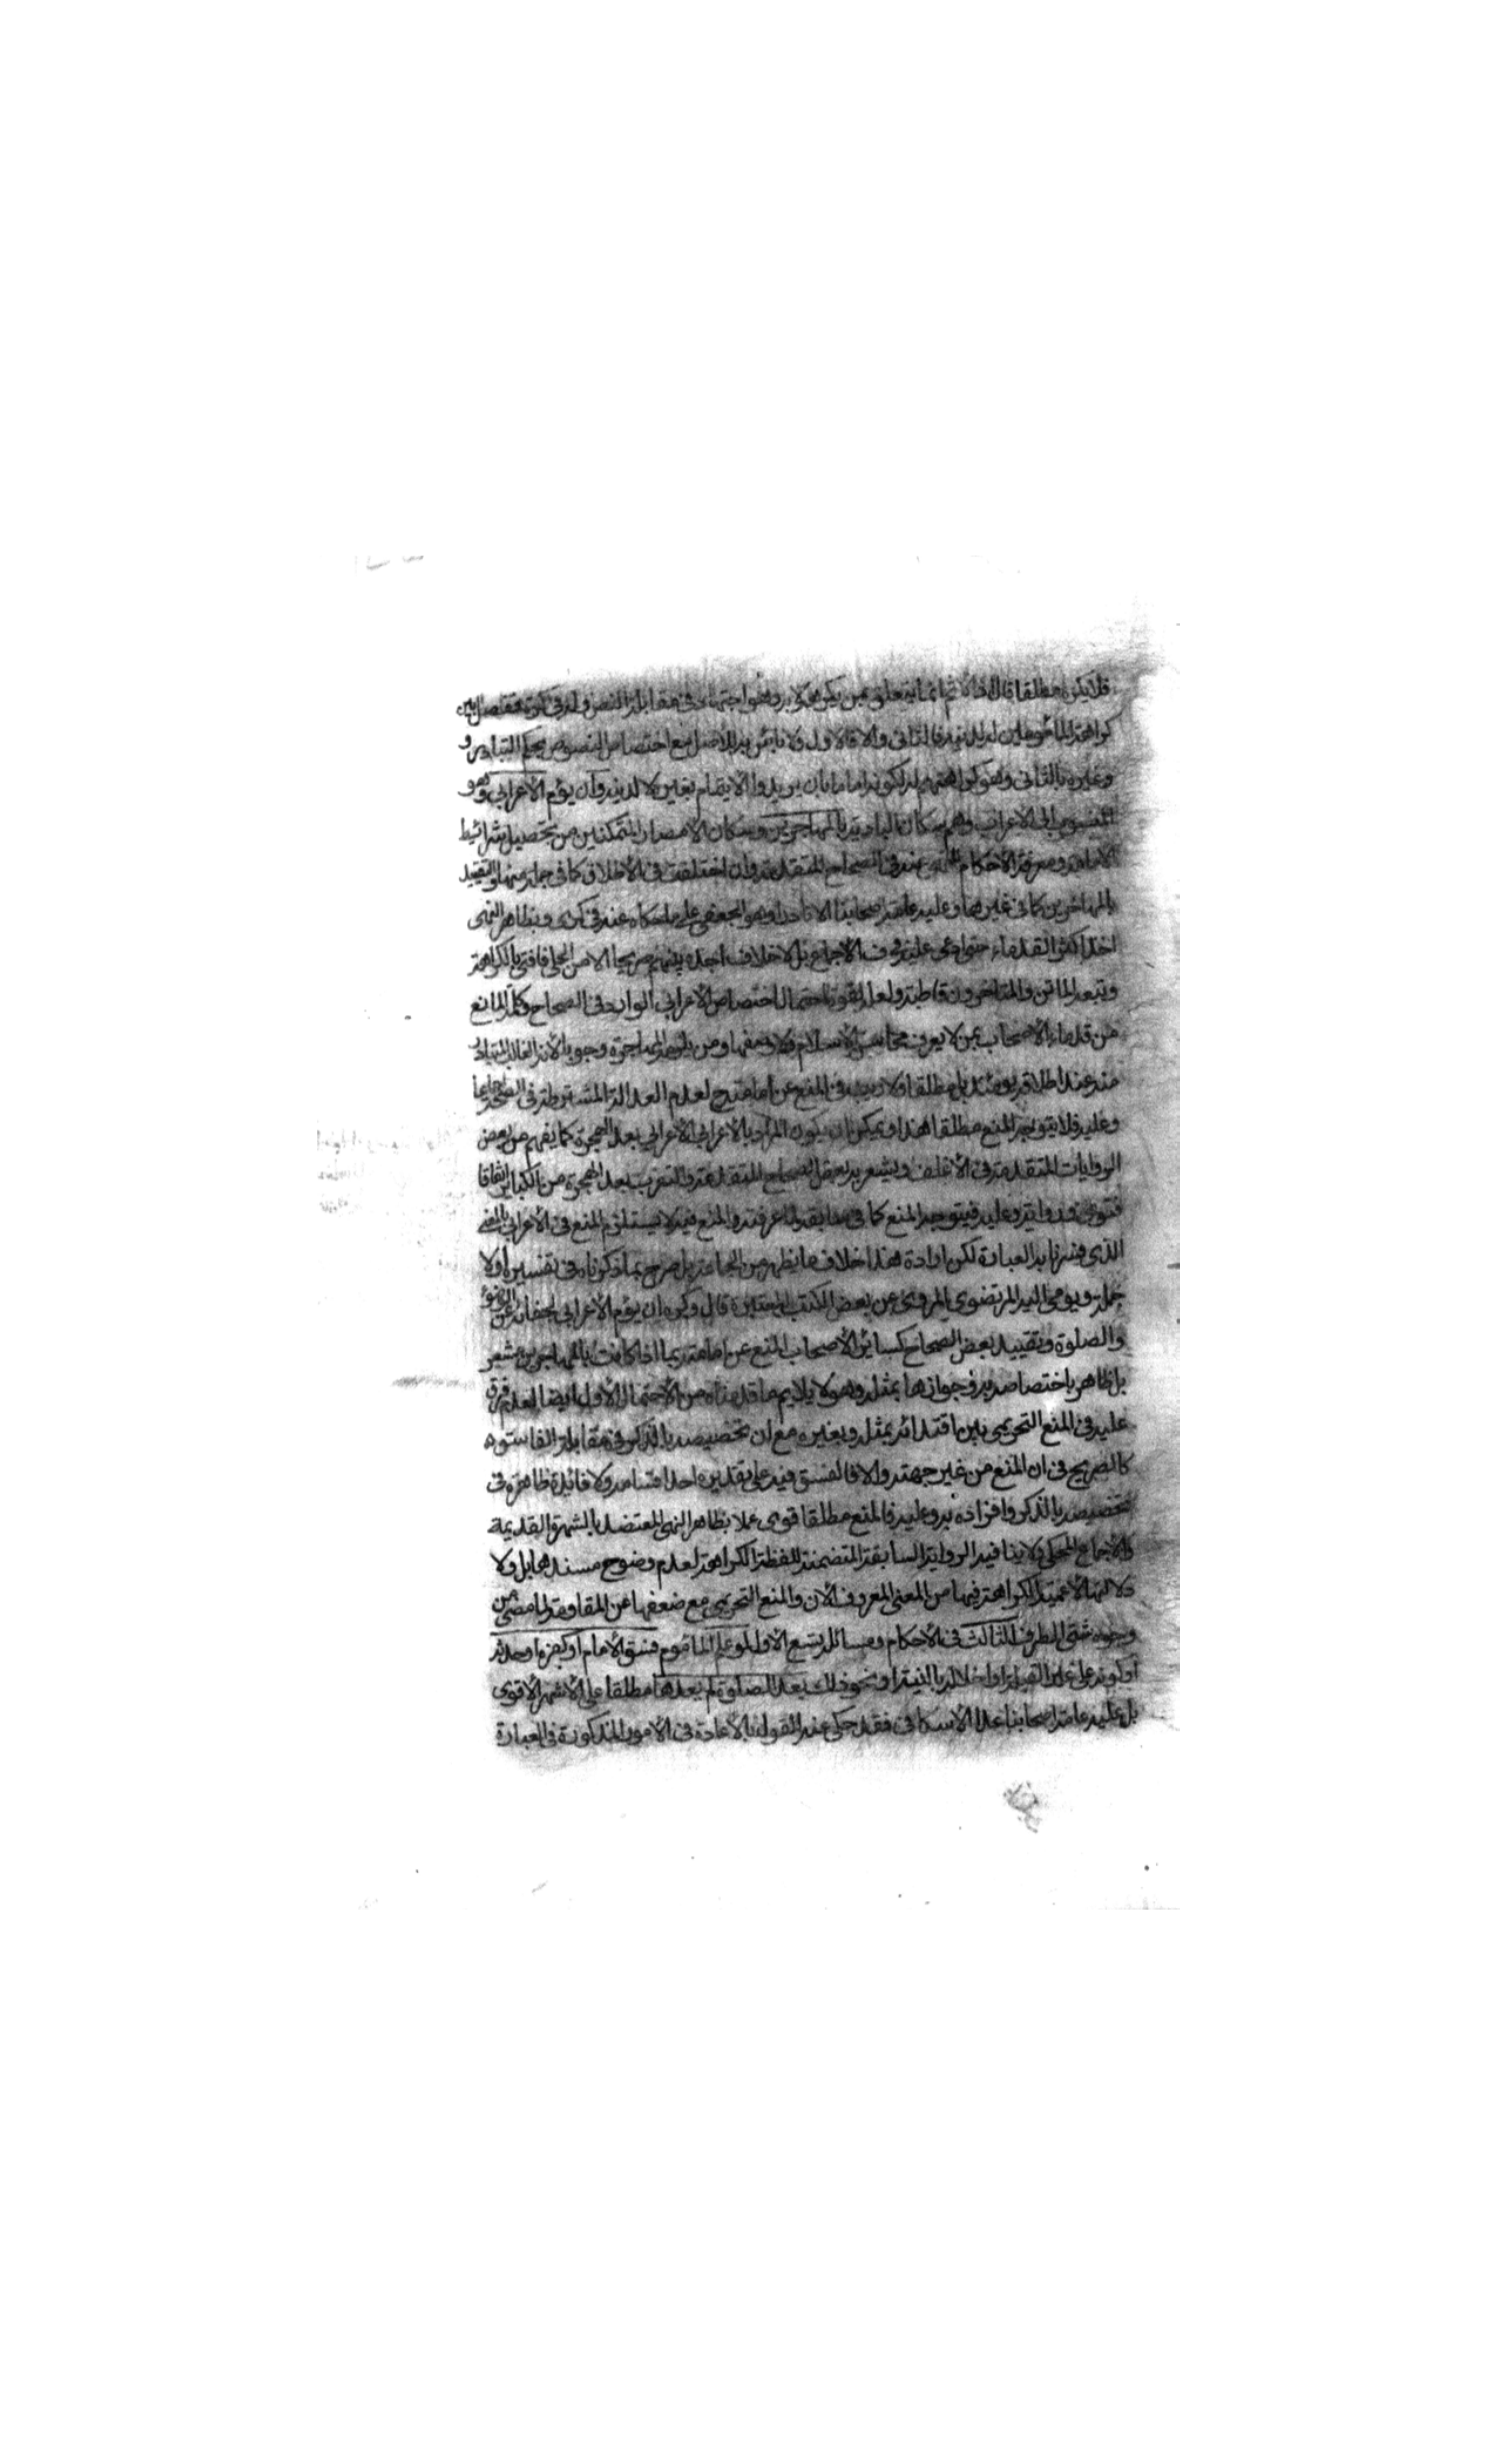 فلا يكره مطلقا قال لان الاثم انما يتعلق بمن يكرهه لا به وهو اجتهاد في مقابلة النص وله في كرة ففصل بين
كراهة المأمومين له لدينه فالثاني والا فالاول ولا بأس به للاصل مع اختصاص النصوص بحكم التبادر و
وغيره بالثاني وهو كراهتهم له لكونه اماما بان يريدوا الايتمام بغيره لا لدينه وان يؤم الأعرابي وهو
المنسوب الى الاعراب وهم سكان البادية بالمهاجرين وسكان الامصار المتمكنين من تحصيل شرائط
الامامة ومعرفة الاحكام للنهي عنه في الصحاح المتقدمة وان اختلفت في الاطلاق كما في جملة منها والتقييد
بالمهاجرين كما في غيرها وعليه عامة اصحابنا الا نادرا وهو الجعفي على ما حكاه عنه في كرى وبظاهر النهي
اخذ اكثر القدماء حتى ادعى عليه في ف الاجماع بل لا خلاف اجده بينهم صريحا الا من الحلي فافتى بالكراهة
وتبعه الماتن والمتاخرون قاطبة ولعله لقوة احتمال اختصاص الأعرابي الوارد في الصحاح وكلمة المانع
من قدماء الأصحاب بمن لا يعرف محاسن الإسلام ولا وصفها ومن يلزمه المهاجرة وجوبا لأنه الغالب المتبادر
منه عند اطلاقه يومئذ بل مطلقا ولا ريب في المنع عن امامته ح لعدم العدالة المشترطة في الصحة اجماعا
وعليه فلا يتوجه المنع مطلقا هذا ويمكن ان يكون المراد بالأعرابي الأعرابي بعد الهجرة كما يفهم من بعض
الروايات المتقدمة في الأغلف ويشعر به بعض الصحاح المتقدمة والتعرب بعد الهجرة من الكبائر اتفاقا
فتوى ورواية وعليه فيتوجه المنع كما في سابقه لما عرفته والمنع فيه لا يستلزم المنع في الأعرابي بالمعنى
الذي فسرنا به العبارة لكن ارادة هذا خلاف ما يظهر من الجماعة بل صرح بما ذكرناه في تفسيره اولا
جملة ويومي اليه المرتضوي المروي عن بعض الكتب المعتبرة قال وكره ان يؤم الأعرابي لجفائه عن الوضوء
والصلوة وتقييد بعض الصحاح كسائر الأصحاب المنع عن امامته بما اذا كانت بالمهاجرين مشعر
بل ظاهر باختصاصه به وجوازها بمثله وهو لا يلايم ما قدمناه من الاحتمال الأول ايضا لعدم فرق
عليه في المنع التحريمي بين اقتدائه بمثله وبغيره مع ان تخصيصه بالذكر في مقابلة الفاسق وه
كالصريح في ان المنع من غير جهته والا فالفسق فيه على تقديره احد اقسامه ولا فائدة ظاهرة في
تخصيصه بالذكر وافراده به وعليه فالمنع مطلقا قوى عملا بظاهر النهي المعتضد بالشهرة القديمة
والاجماع المحكي ولا ينافيه الرواية السابقة المتضمنة للفظة الكراهة لعدم وضوح مسندها بل ولا
دلالتها لأعمية الكراهة فيها من المعنى المعروف الآن والمنع التحريمي مع ضعفها عن المقاومة لما مضى من
وجوه شتى الطرف الثالث في الأحكام ومسائله تسع الاولى لو علم المأموم فسق الأمام او كفره او حدثه
او كونه على غير القبلة او اخلاله بالنية او نحو ذلك بعد الصلوة لم يعدها مطلقا على الأشهر الأقوى
بل عليه عامة اصحابنا عدا الاسكافي فقد حكى عنه القول بالأعادة في الأمور المذكورة في العبارة